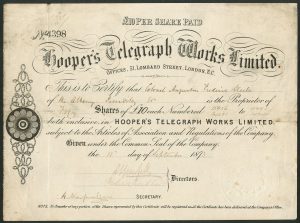 £10 PER SHARE PAID
No. 4398
Hooper's Telegraph Works Limited.
OFFICES, 31, LOMBARD STREET, LONDON, E.C.
This is to Certify that Colonel Augustus Frederic
of is the Proprietor of
Shares of £10 each Numbered to
both inclusive, in HOOPER'S TELEGRAPH WORKS LIMITED,
subject to the Articles of Association and Regulations of the Company.
Given under the Common Seal of the Company
the day of September 187
Directors.
SECRETARY.
NOTE. No Transfer of any portion of the Shares represented by this Certificate will be registered until the Certificate has been delivered at the Company's Office.